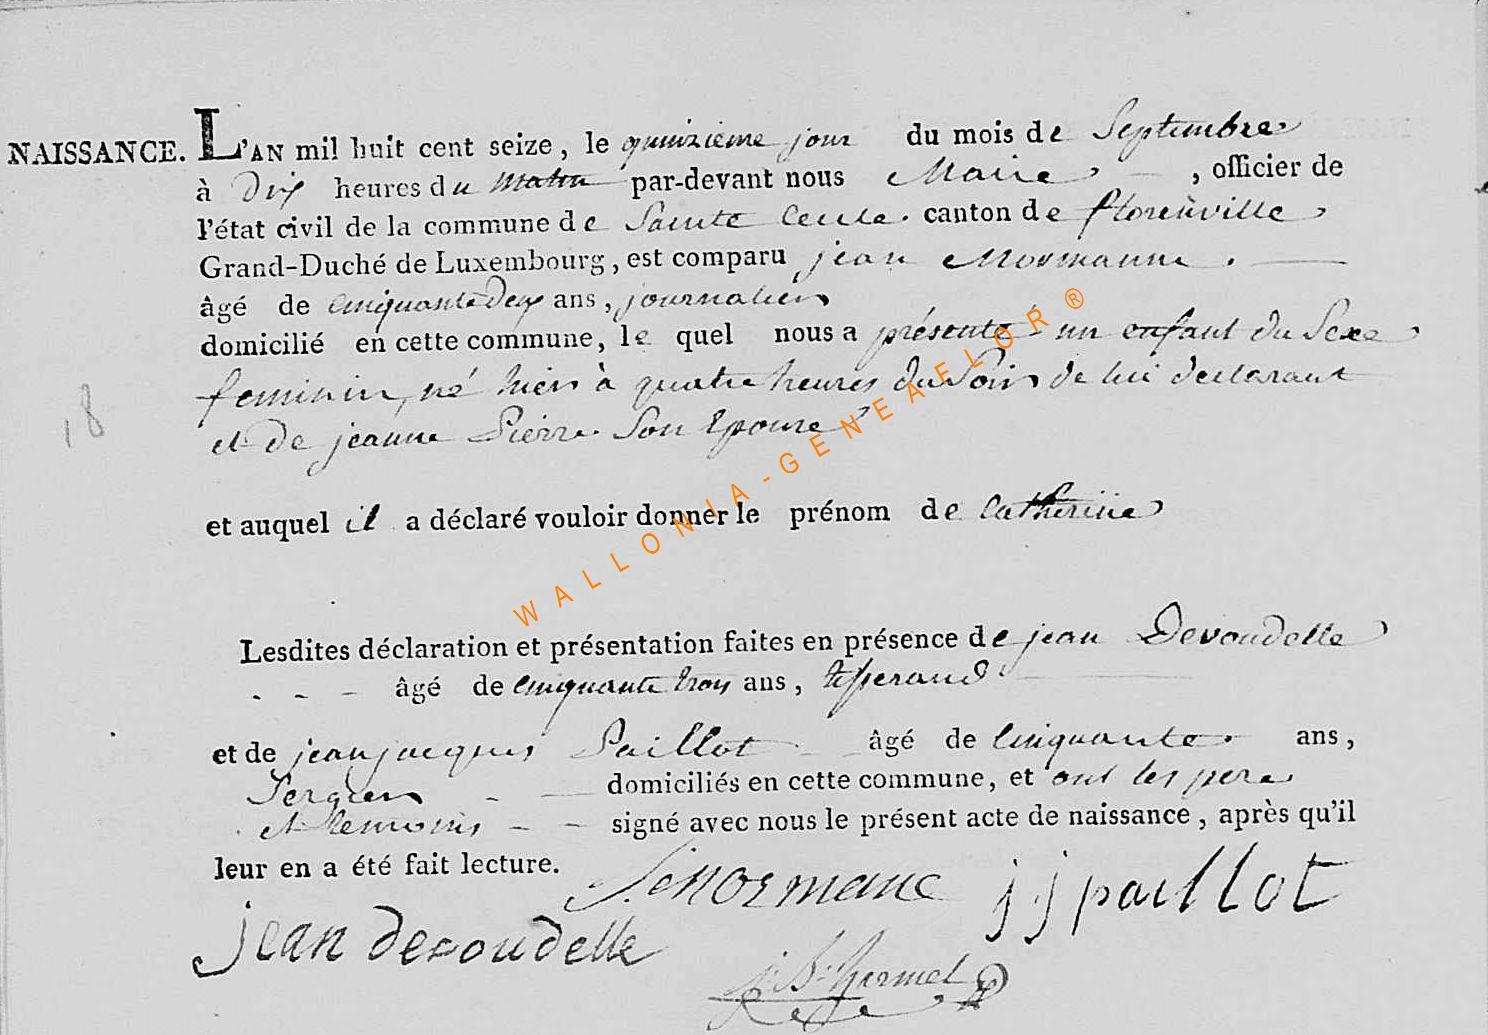 NAISSANCE. L'AN mil huit cent seize, le quinzieme jour du mois de Septembre
à dix heures du matin par-devant nous Maire, officier de
l'état civil de la commune de Sainte Cecile. canton de florenville
Grand-Duché de Luxembourg, est comparu jean Normanne.
âgé de cinquante deux ans, journalier
domicilié en cette commune, le quel nous a présenté un enfant du Sexe
18
feminin, né hier à quatre heures du Soir de lui declarant
et de jeanne Pierre Son Epouse
et auquel il a déclaré vouloir donner le prénom de Catherine
WALLONIA-GENEAELOR®
Lesdites déclaration et présentation faites en présence de jean Devoudelle
âgé de cinquante trois ans, tisserand
et de jean jacques Paillot âgé de Cinquante ans,
Sergier domiciliés en cette commune, et ont les pere
et temoins signé avec nous le présent acte de naissance, après qu'il
leur en a été fait lecture.
j j paillot
jean devoudelle